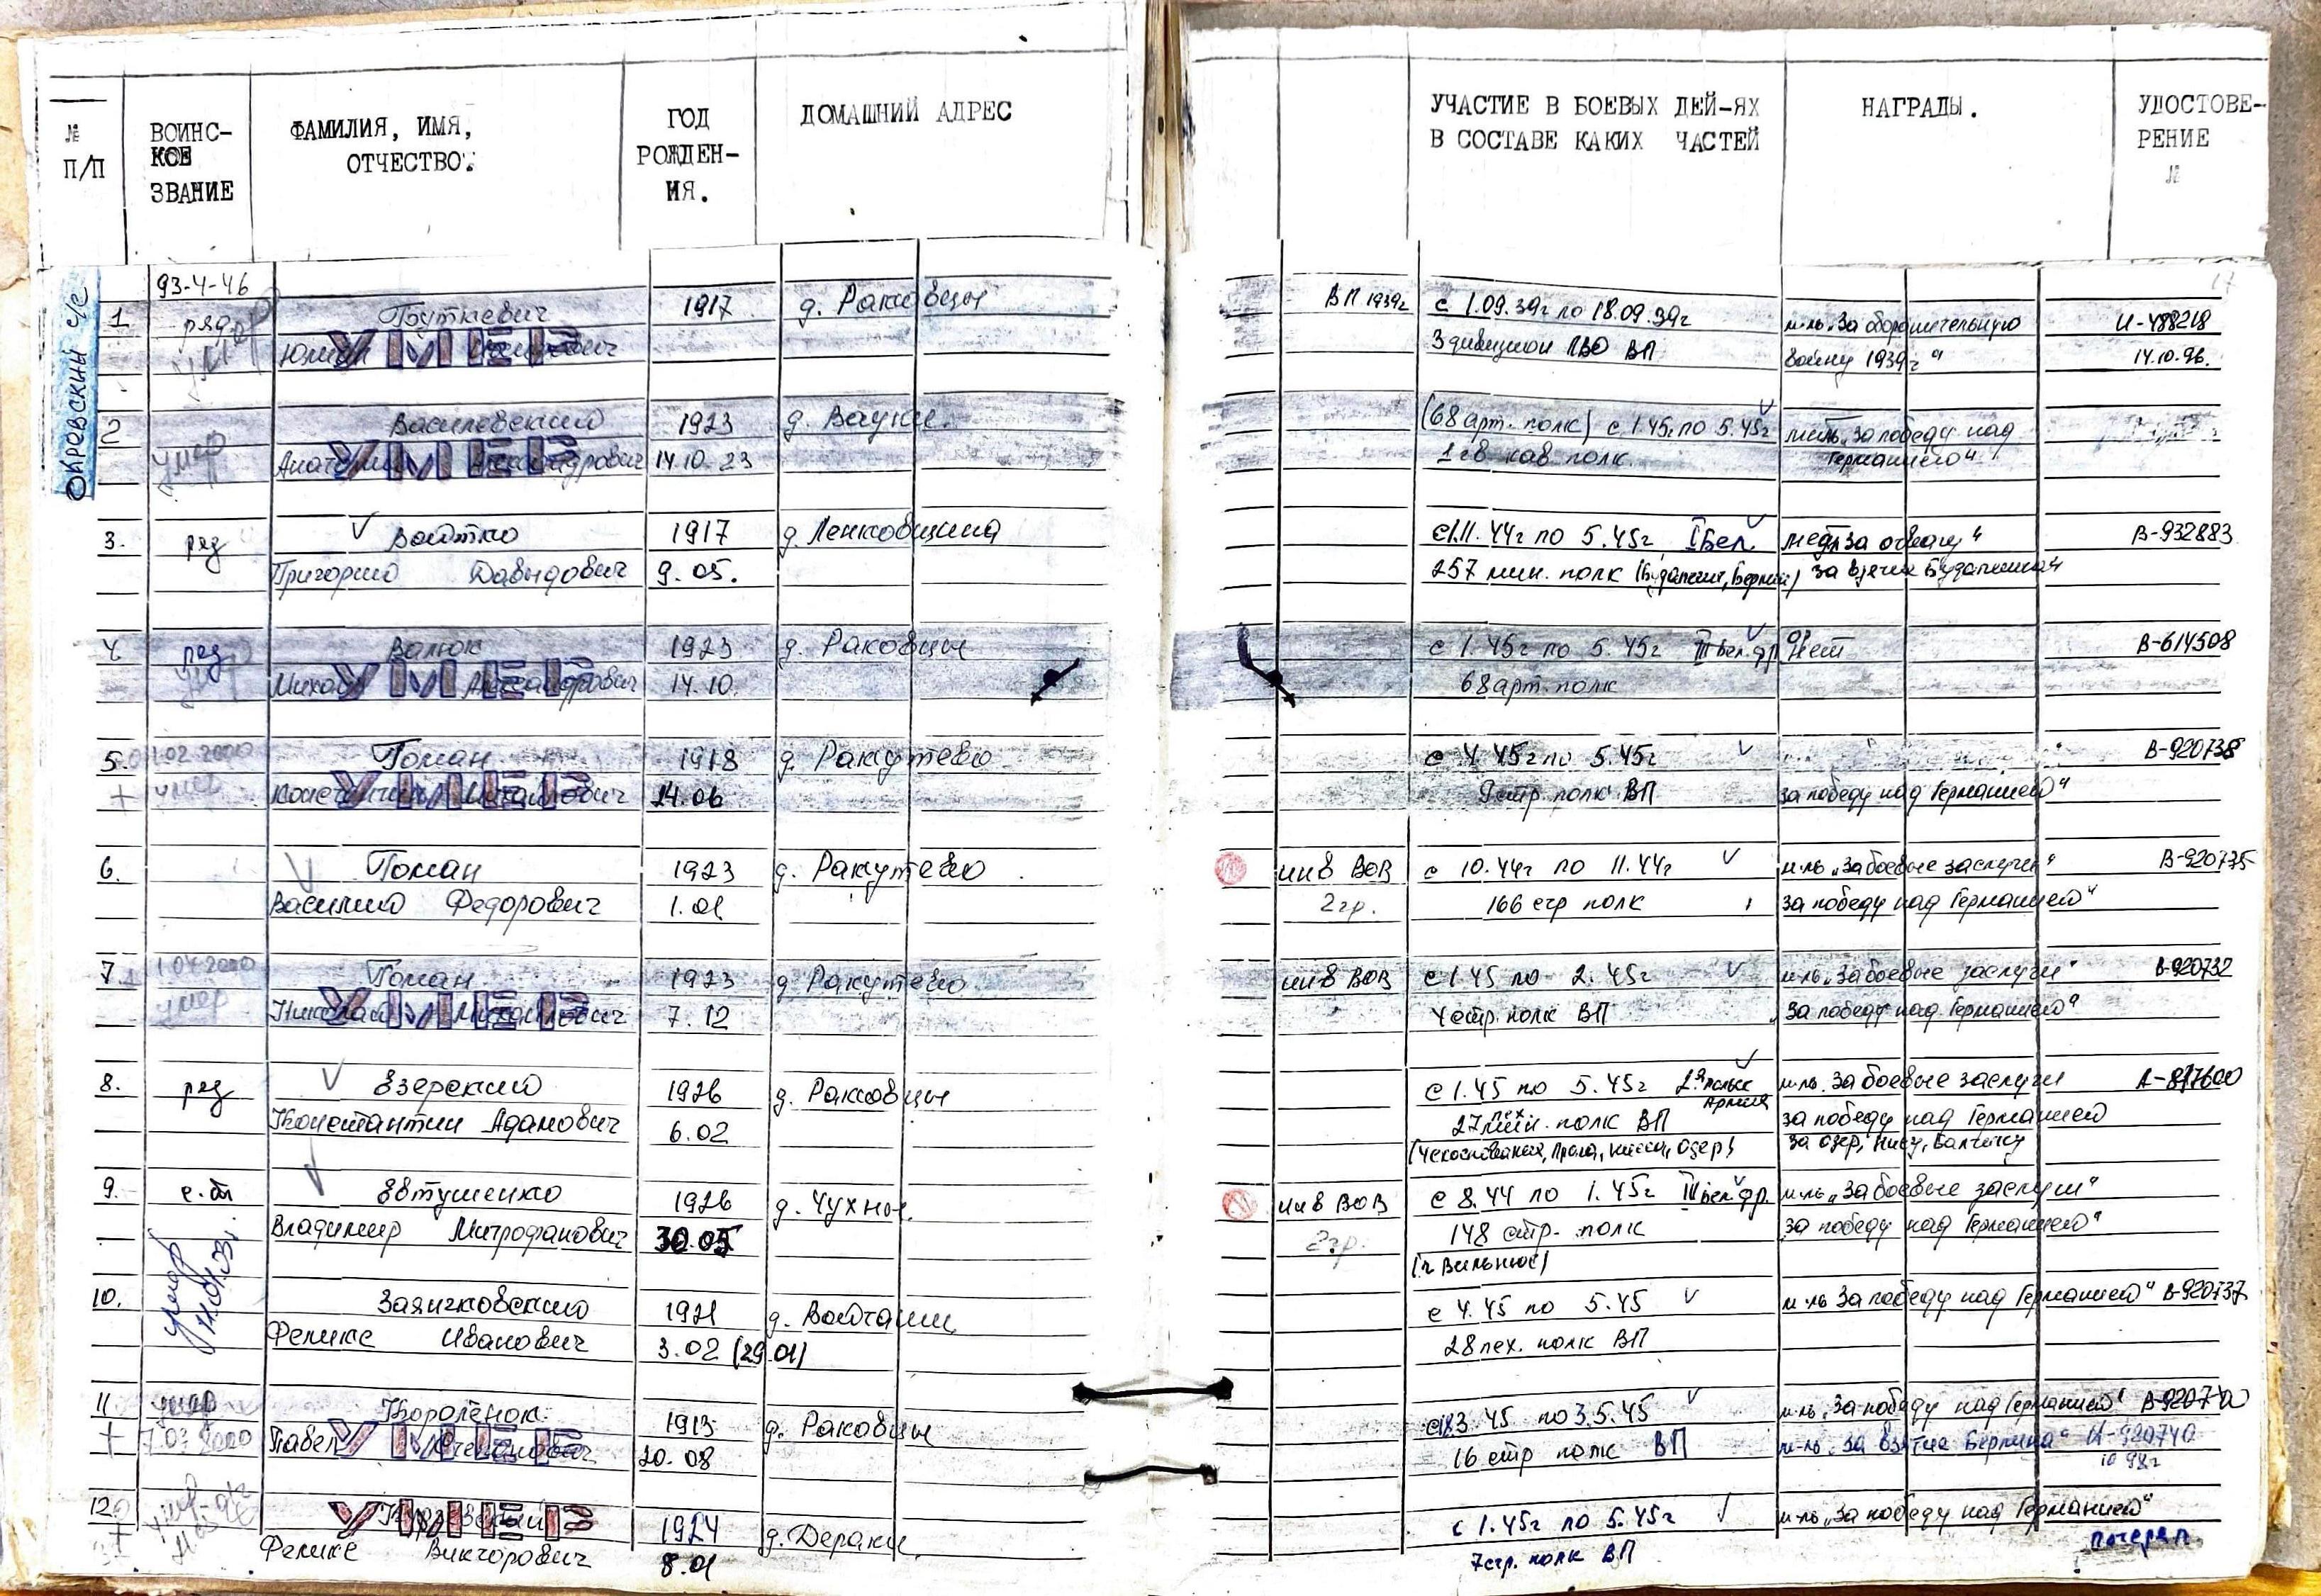 № П/П
ВОИНС-
КОЕ
ЗВАНИЕ
ФАМИЛИЯ, ИМЯ,
ОТЧЕСТВО.
ГОД
РОЖДЕН-
ИЯ.
ДОМАШНИЙ АДРЕС
УЧАСТИЕ В БОЕВЫХ ДЕЙ-ЯХ
В СОСТАВЕ КАКИХ ЧАСТЕЙ
НАГРАДЫ.
УДОСТОВЕ-
РЕНИЕ
№
17
Окревский с/с
93-4-46
1 ряд 1917 д. Раковцы ВП 1939г с 1.09.39г по 18.09.39г м-ль "За оборонительную И-488218
умер УМЕР 3 дивизион ПВО ВП войну 1939г" 14.10.96.
2 Василевский 1923 д. Вауки. (68 арт. полк) с 1.45г по 5.45г за победу над
умер УМЕР Александрович 14.10.23 1 гв кав полк. Германией"
3. ряд Войтко 1917 д. Ленковщина с 11.44г по 5.45г I Бел. "за отвагу" В-932883
Григорий Давыдович 9.05. 257 мин. полк (Будапешт, Берлин) за взятие Будапешта"
4 ряд Валюк 1923 д. Раковцы с 1.45г по 5.45г III бел. фр. Нет В-614508
умер УМЕР Александрович 14.10. 68 арт. полк
5. 02.2000 Гоман 1918 д. Ракутево с 4.45г по 5.45г В-920738
+ умер УМЕР Михайлович 14.06 9 стр. полк ВП за победу над Германией"
6. Гоман 1923 д. Ракутево инв ВОВ с 10.44г по 11.44г м-ль "За боевые заслуги" В-920735
Василий Федорович 1.01 2 гр. 166 стр полк за победу над Германией"
7. 1.04.2000 Гоман 1923 д. Ракутево инв ВОВ с 1.45 по 2.45г м-ль "За боевые заслуги" В-920732
умер УМЕР Николай Михайлович 7.12 4 стр. полк ВП "За победу над Германией"
8. ряд Езерский 1926 д. Раковцы с 1.45 по 5.45г 2-я польск Армия м-ль. За боевые заслуги А-817600
Константин Адамович 6.02 27 пех. полк ВП за победу над Германией
9. с-т Евтушенко 1926 д. Чухны. инв ВОВ с 8.44 по 1.45г III бел. фр. м-ль "За боевые заслуги"
Владимир Митрофанович 30.05 2 гр. 148 стр. полк за победу над Германией"
(г Вильнюс)
10. умер Заянчковский 1921 д. Войтащи с 4.45 по 5.45 м-ль За победу над Германией" В-920737
Феликс Иванович 3.02 (29.01) 28 пех. полк ВП
11 умер Короленок 1913 д. Раковцы 3.45 по 3.5.45 м-ль "За победу над Германией"
+ 7.03.2000 Павел УМЕР Степанович 20.08 16 стр полк ВП м-ль "За взятие Берлина" И-920740
10 98г
12 умер УМЕР 1924 д. Дераки. с 1.45г по 5.45г м-ль "За победу над Германией"
+ Феликс Викторович 8.01 7 стр. полк ВП потерял